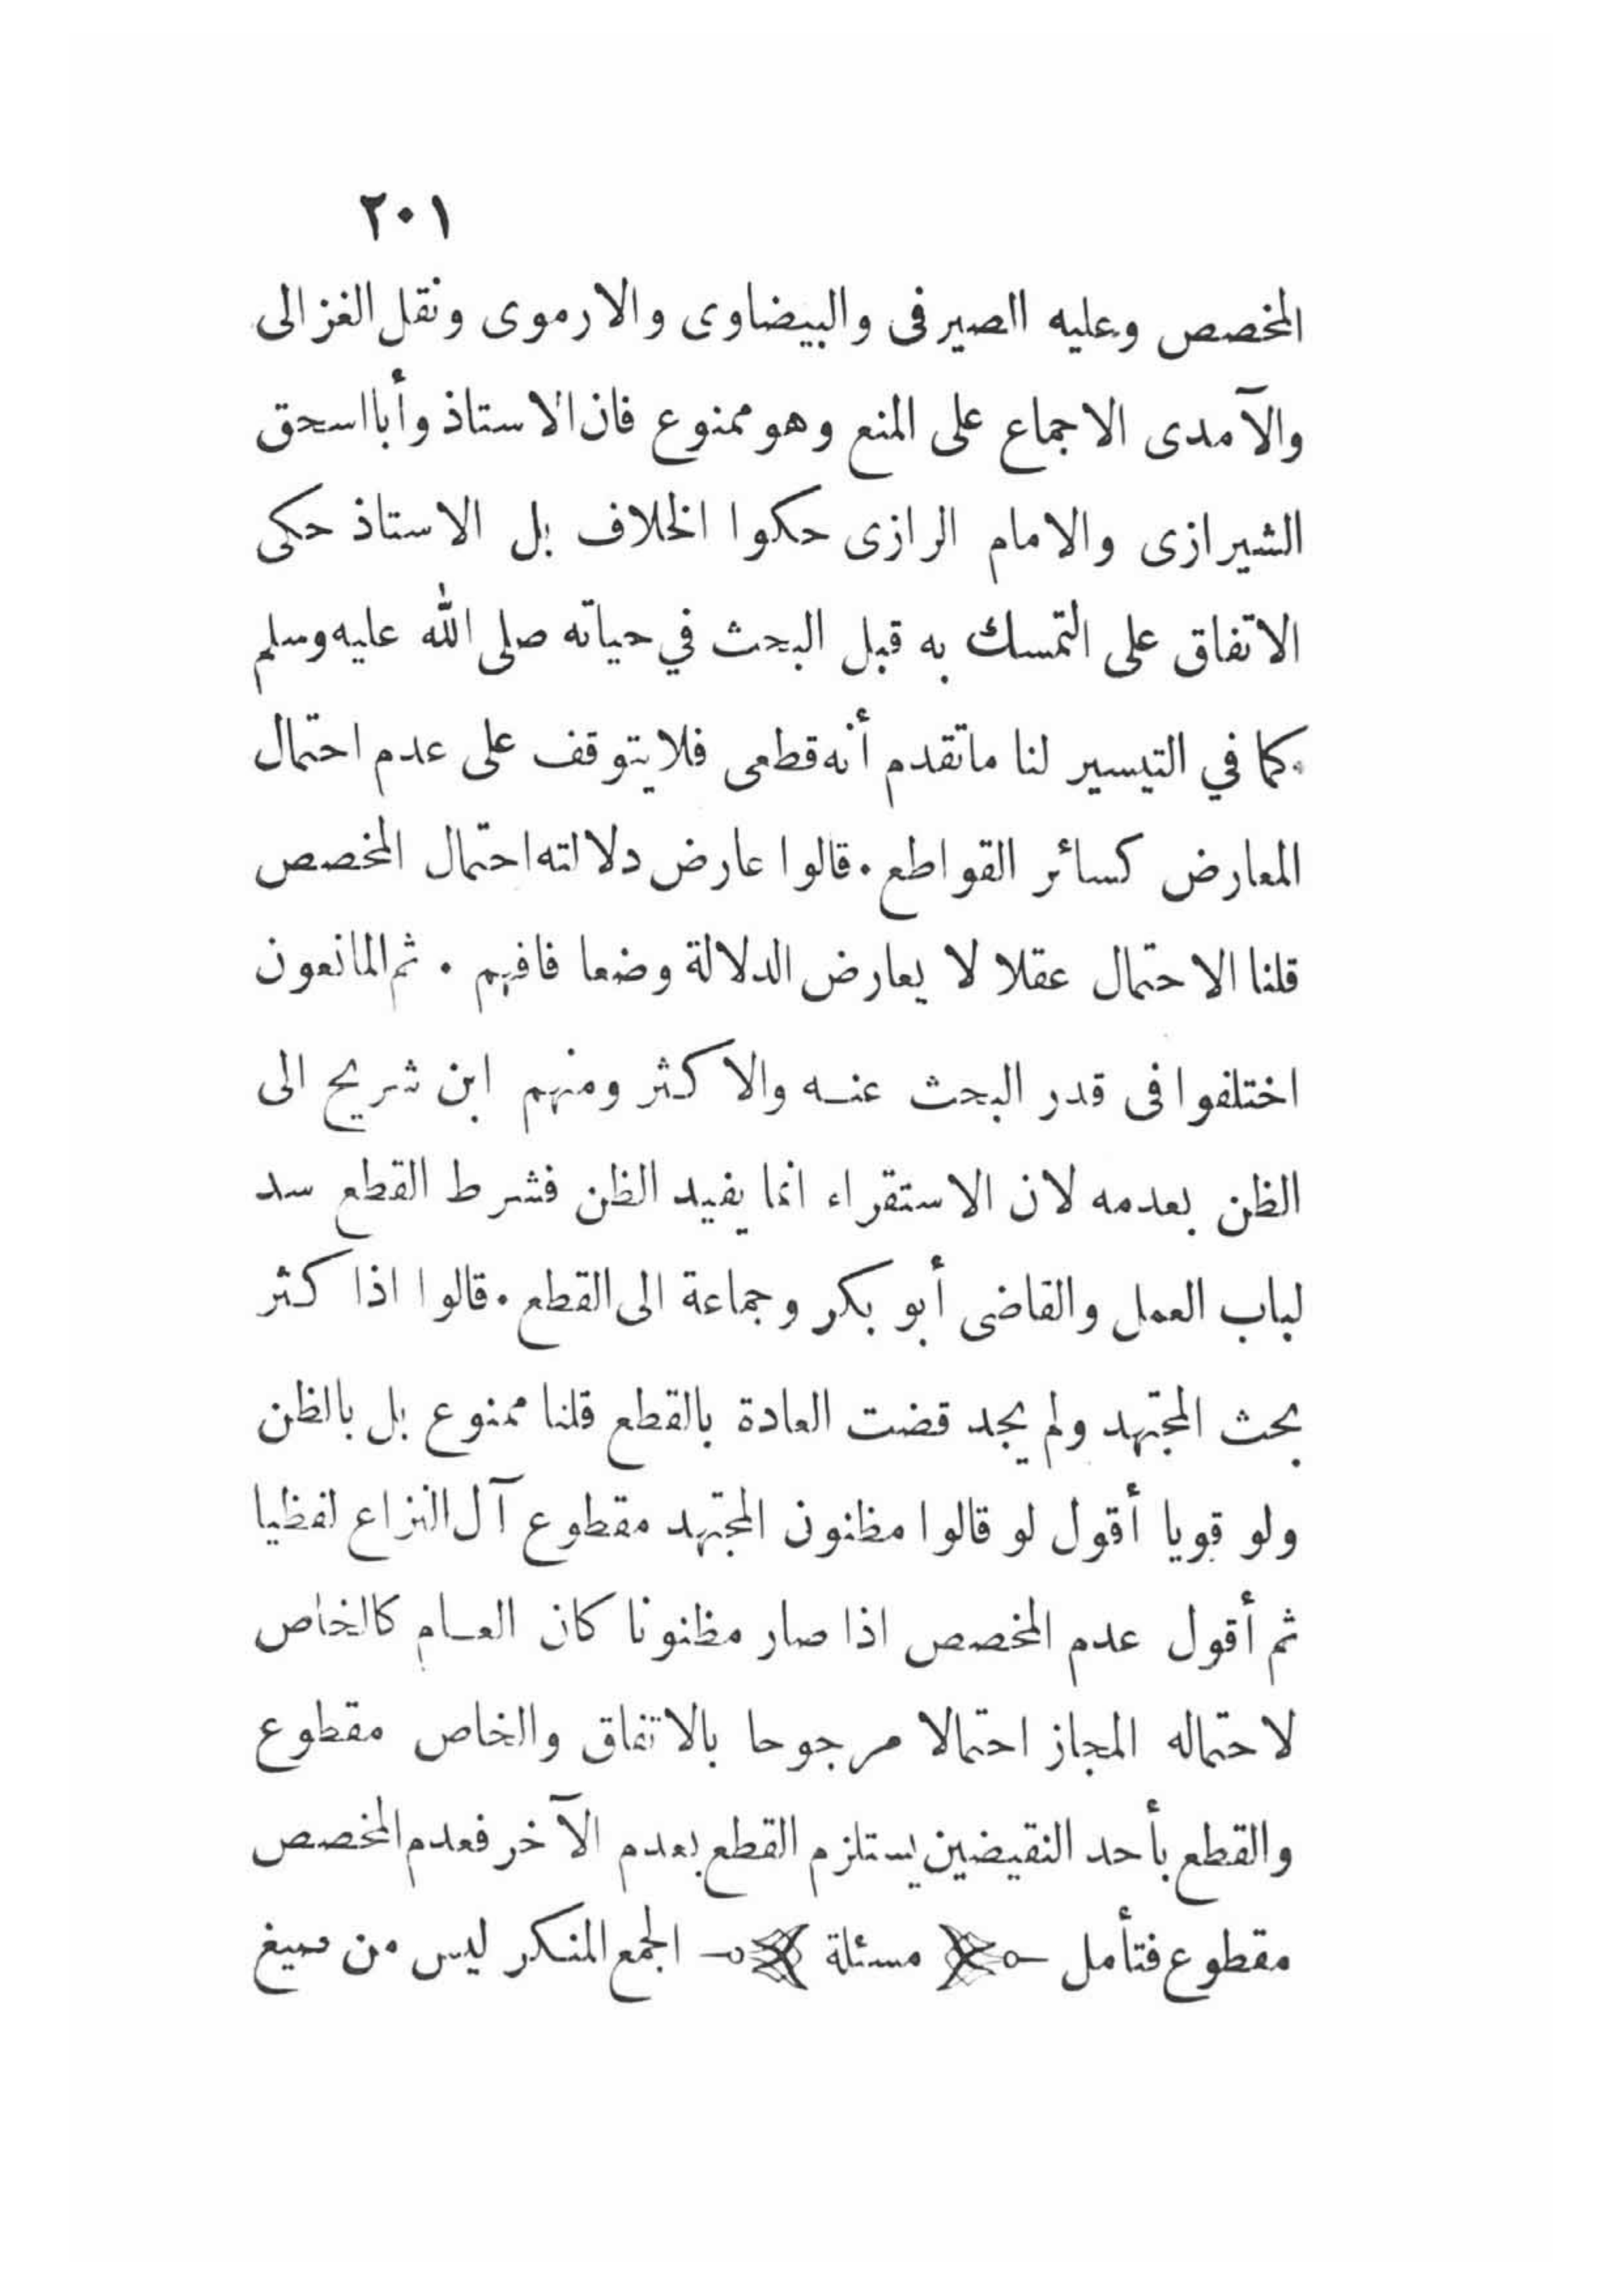 ٢٠١
المخصص وعليه الصيرفى والبيضاوى والارموى ونقل الغزالى
والآمدى الاجماع على المنع وهو ممنوع فان الاستاذ وأبا اسحق
الشيرازى والامام الرازى حكوا الخلاف بل الاستاذ حكى
الاتفاق على التمسك به قبل البحث في حياته صلى الله عليه وسلم
كما في التيسير لنا ما تقدم أنه قطعى فلا يتوقف على عدم احتمال
المعارض كسائر القواطع . قالوا عارض دلالته احتمال المخصص
قلنا الاحتمال عقلا لا يعارض الدلالة وضعا فافهم . ثم المانعون
اختلفوا فى قدر البحث عنه والاكثر ومنهم ابن شريح الى
الظن بعدمه لان الاستقراء انما يفيد الظن فشرط القطع سد
لباب العمل والقاضى أبو بكر وجماعة الى القطع . قالوا اذا كثر
بحث المجتهد ولم يجد قضت العادة بالقطع قلنا ممنوع بل بالظن
ولو قويا أقول لو قالوا مظنون المجتهد مقطوع آل النزاع لفظيا
ثم أقول عدم المخصص اذا صار مظنونا كان العام كالخاص
لاحتماله المجاز احتمالا مرجوحا بالاتفاق والخاص مقطوع
والقطع بأحد النقيضين يستلزم القطع بعدم الآخر فعدم المخصص
مقطوع فتأمل مسئلة الجمع المنكر ليس من صيغ